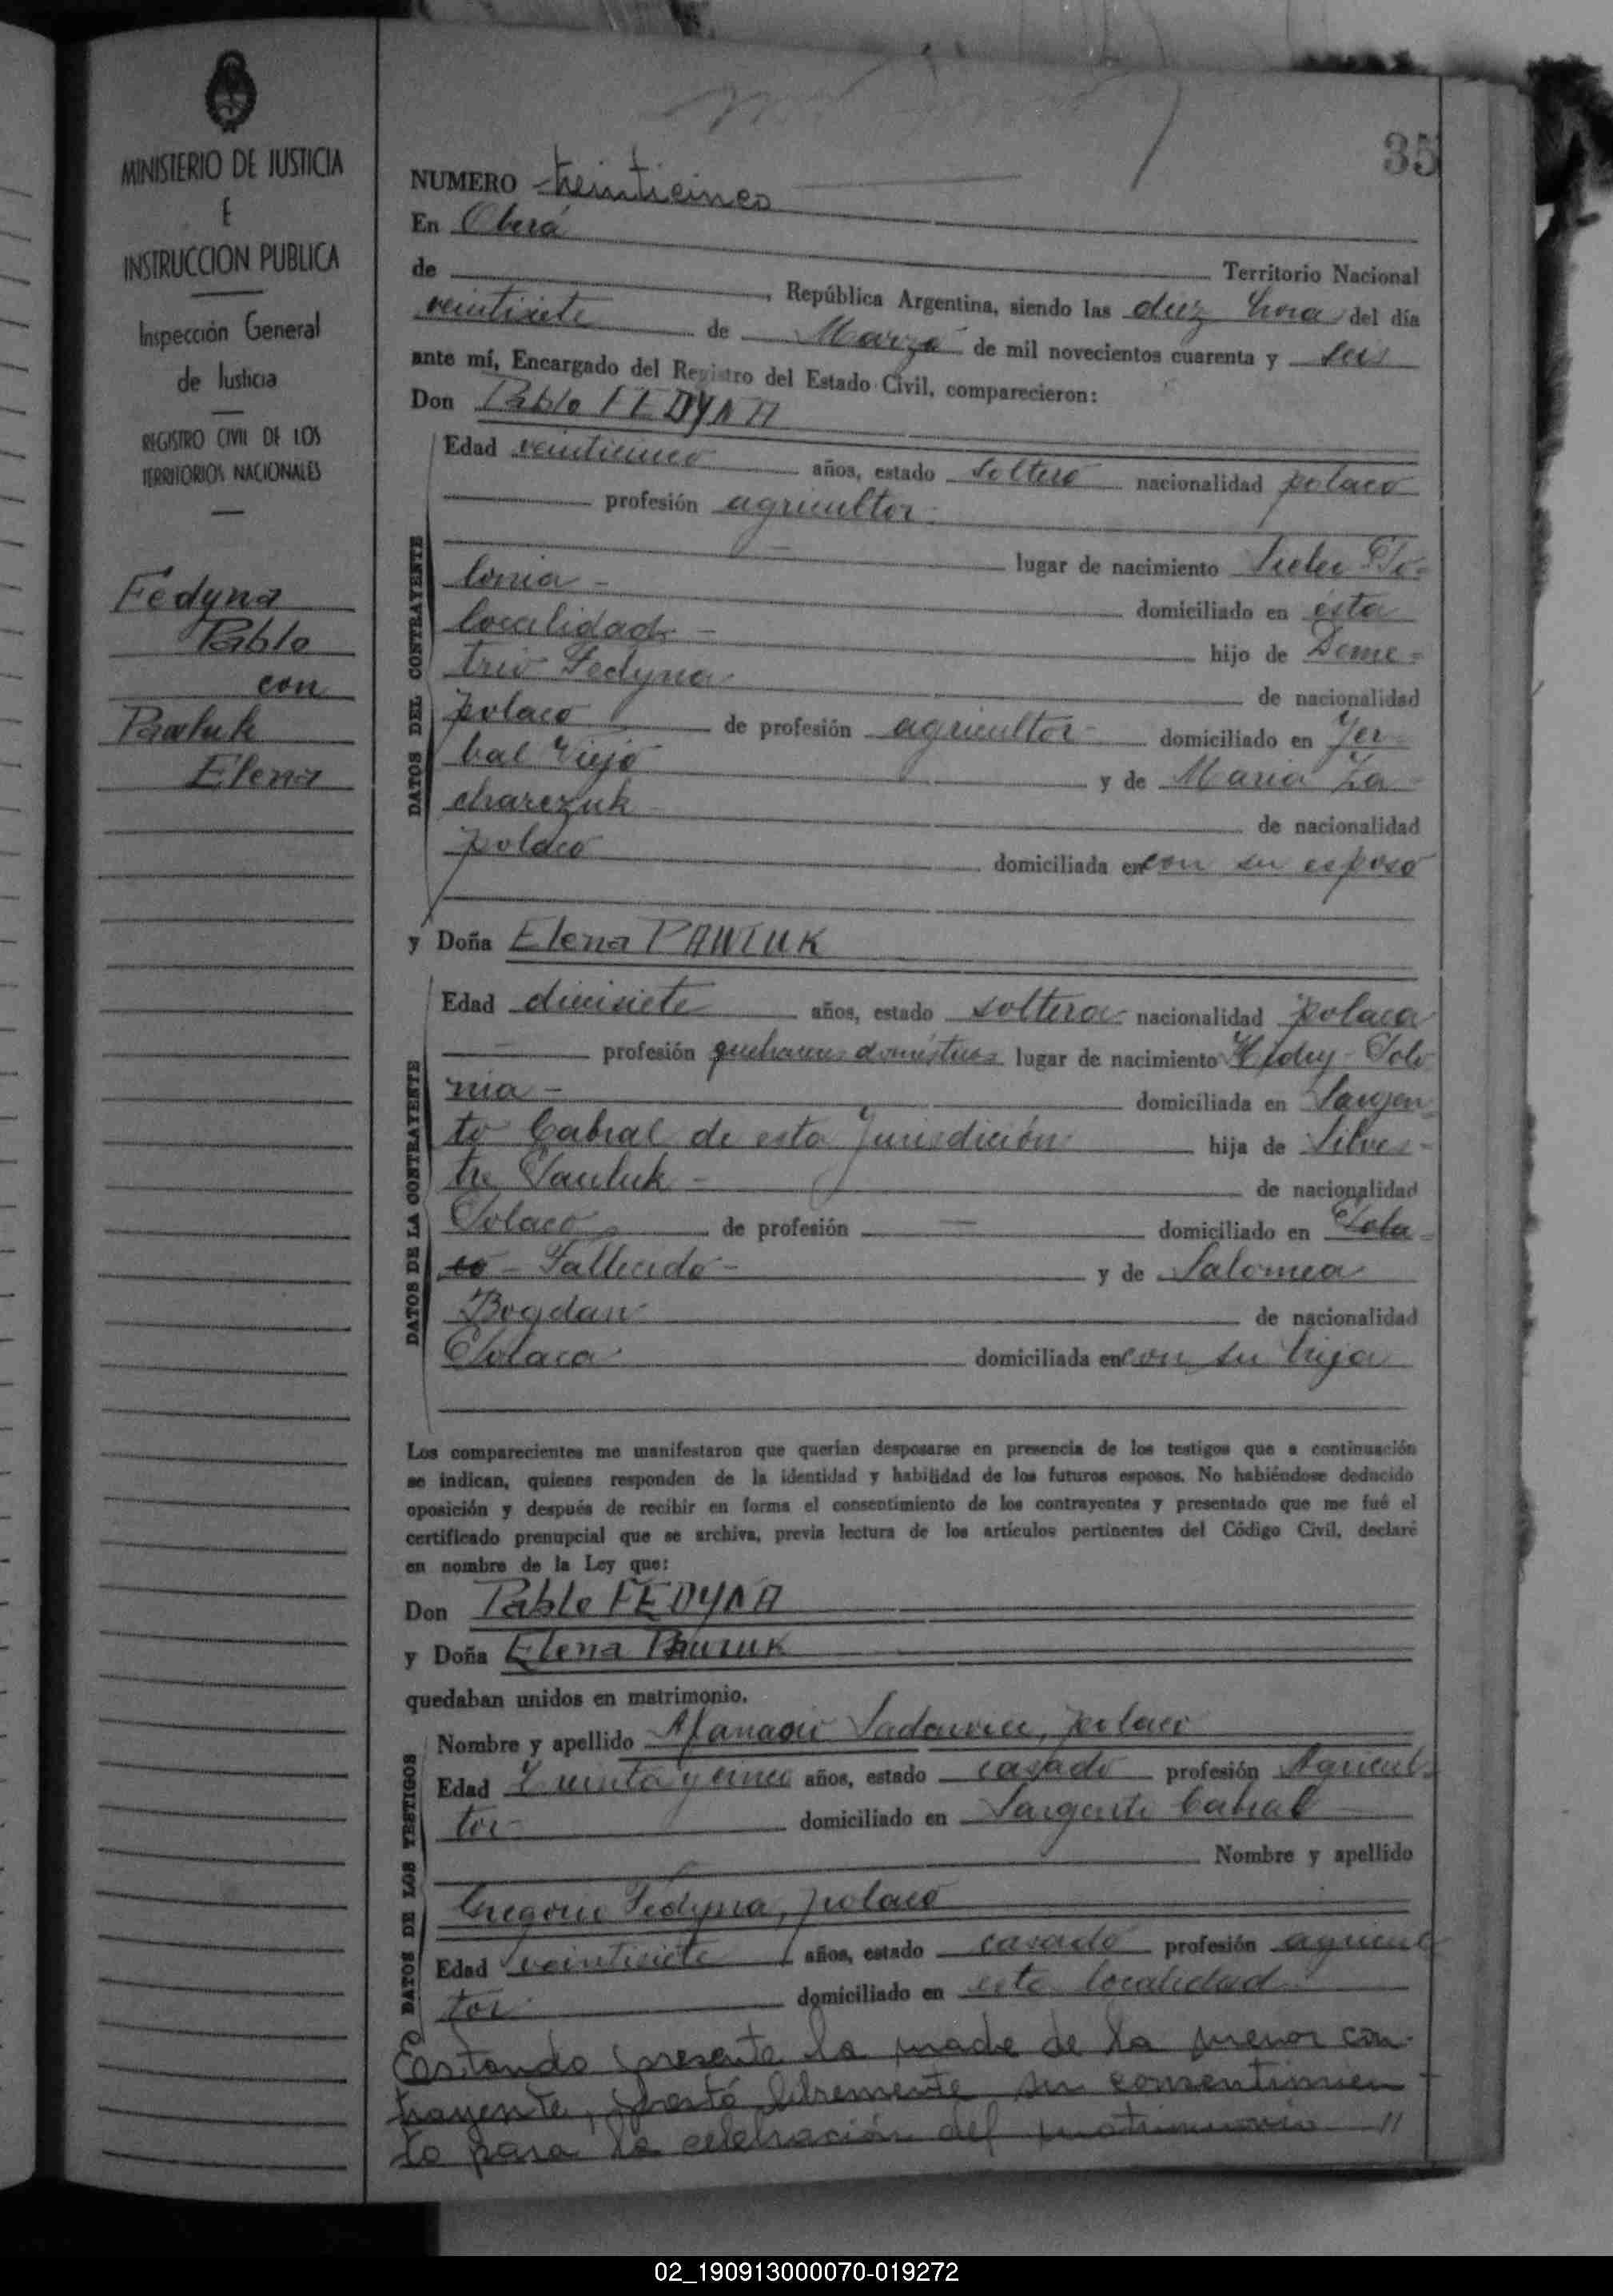 35
MINISTERIO DE JUSTICIA
E
INSTRUCCION PUBLICA
Inspección General
de Justicia
REGISTRO CIVIL DE LOS
TERRITORIOS NACIONALES
Fedyna
Pablo
con
Pawluk
Elena
NUMERO treinticinco
En Oberá
de Territorio Nacional
, República Argentina, siendo las diez hora del día
veintisiete de Marzo de mil novecientos cuarenta y seis
ante mí, Encargado del Registro del Estado Civil, comparecieron:
Don Pablo FEDYNA
DATOS DEL CONTRAYENTE
Edad veinticinco años, estado soltero nacionalidad polaco
profesión agricultor
lugar de nacimiento Po-
lonia - domiciliado en ésta
localidad - hijo de Deme-
trio Fedyna de nacionalidad
polaco de profesión agricultor domiciliado en Yer-
bal Viejo y de Maria Za-
charczuk de nacionalidad
polaco domiciliada en con su esposo
y Doña Elena PAWLUK
DATOS DE LA CONTRAYENTE
Edad diecisiete años, estado soltera nacionalidad polaca
profesión quehaceres domésticos lugar de nacimiento Polo
nia - domiciliada en Sargen-
to Cabral de esta Jurisdición hija de Silves-
tre Pauluk - de nacionalidad
Polaco de profesión — domiciliado en Pola-
co - Fallecido - y de Salomea
Bogdan de nacionalidad
Polaca domiciliada en con su hija
Los comparecientes me manifestaron que querían desposarse en presencia de los testigos que a continuación
se indican, quienes responden de la identidad y habilidad de los futuros esposos. No habiéndose deducido
oposición y después de recibir en forma el consentimiento de los contrayentes y presentado que me fué el
certificado prenupcial que se archiva, previa lectura de los artículos pertinentes del Código Civil, declaré
en nombre de la Ley que:
Don Pablo FEDYNA
y Doña Elena PAWLUK
quedaban unidos en matrimonio.
DATOS DE LOS TESTIGOS
Nombre y apellido polaco
Edad Treinta y cinco años, estado casado profesión Agricul-
tor domiciliado en Sargento Cabral
Nombre y apellido
Gregorio Fedyna, polaco
Edad veintisiete años, estado casado profesión agricul
tor domiciliado en esta localidad
Estando presente la madre de la menor con-
trayente, prestó libremente su consentimien
to para la celebración del matrimonio //
02_190913000070-019272